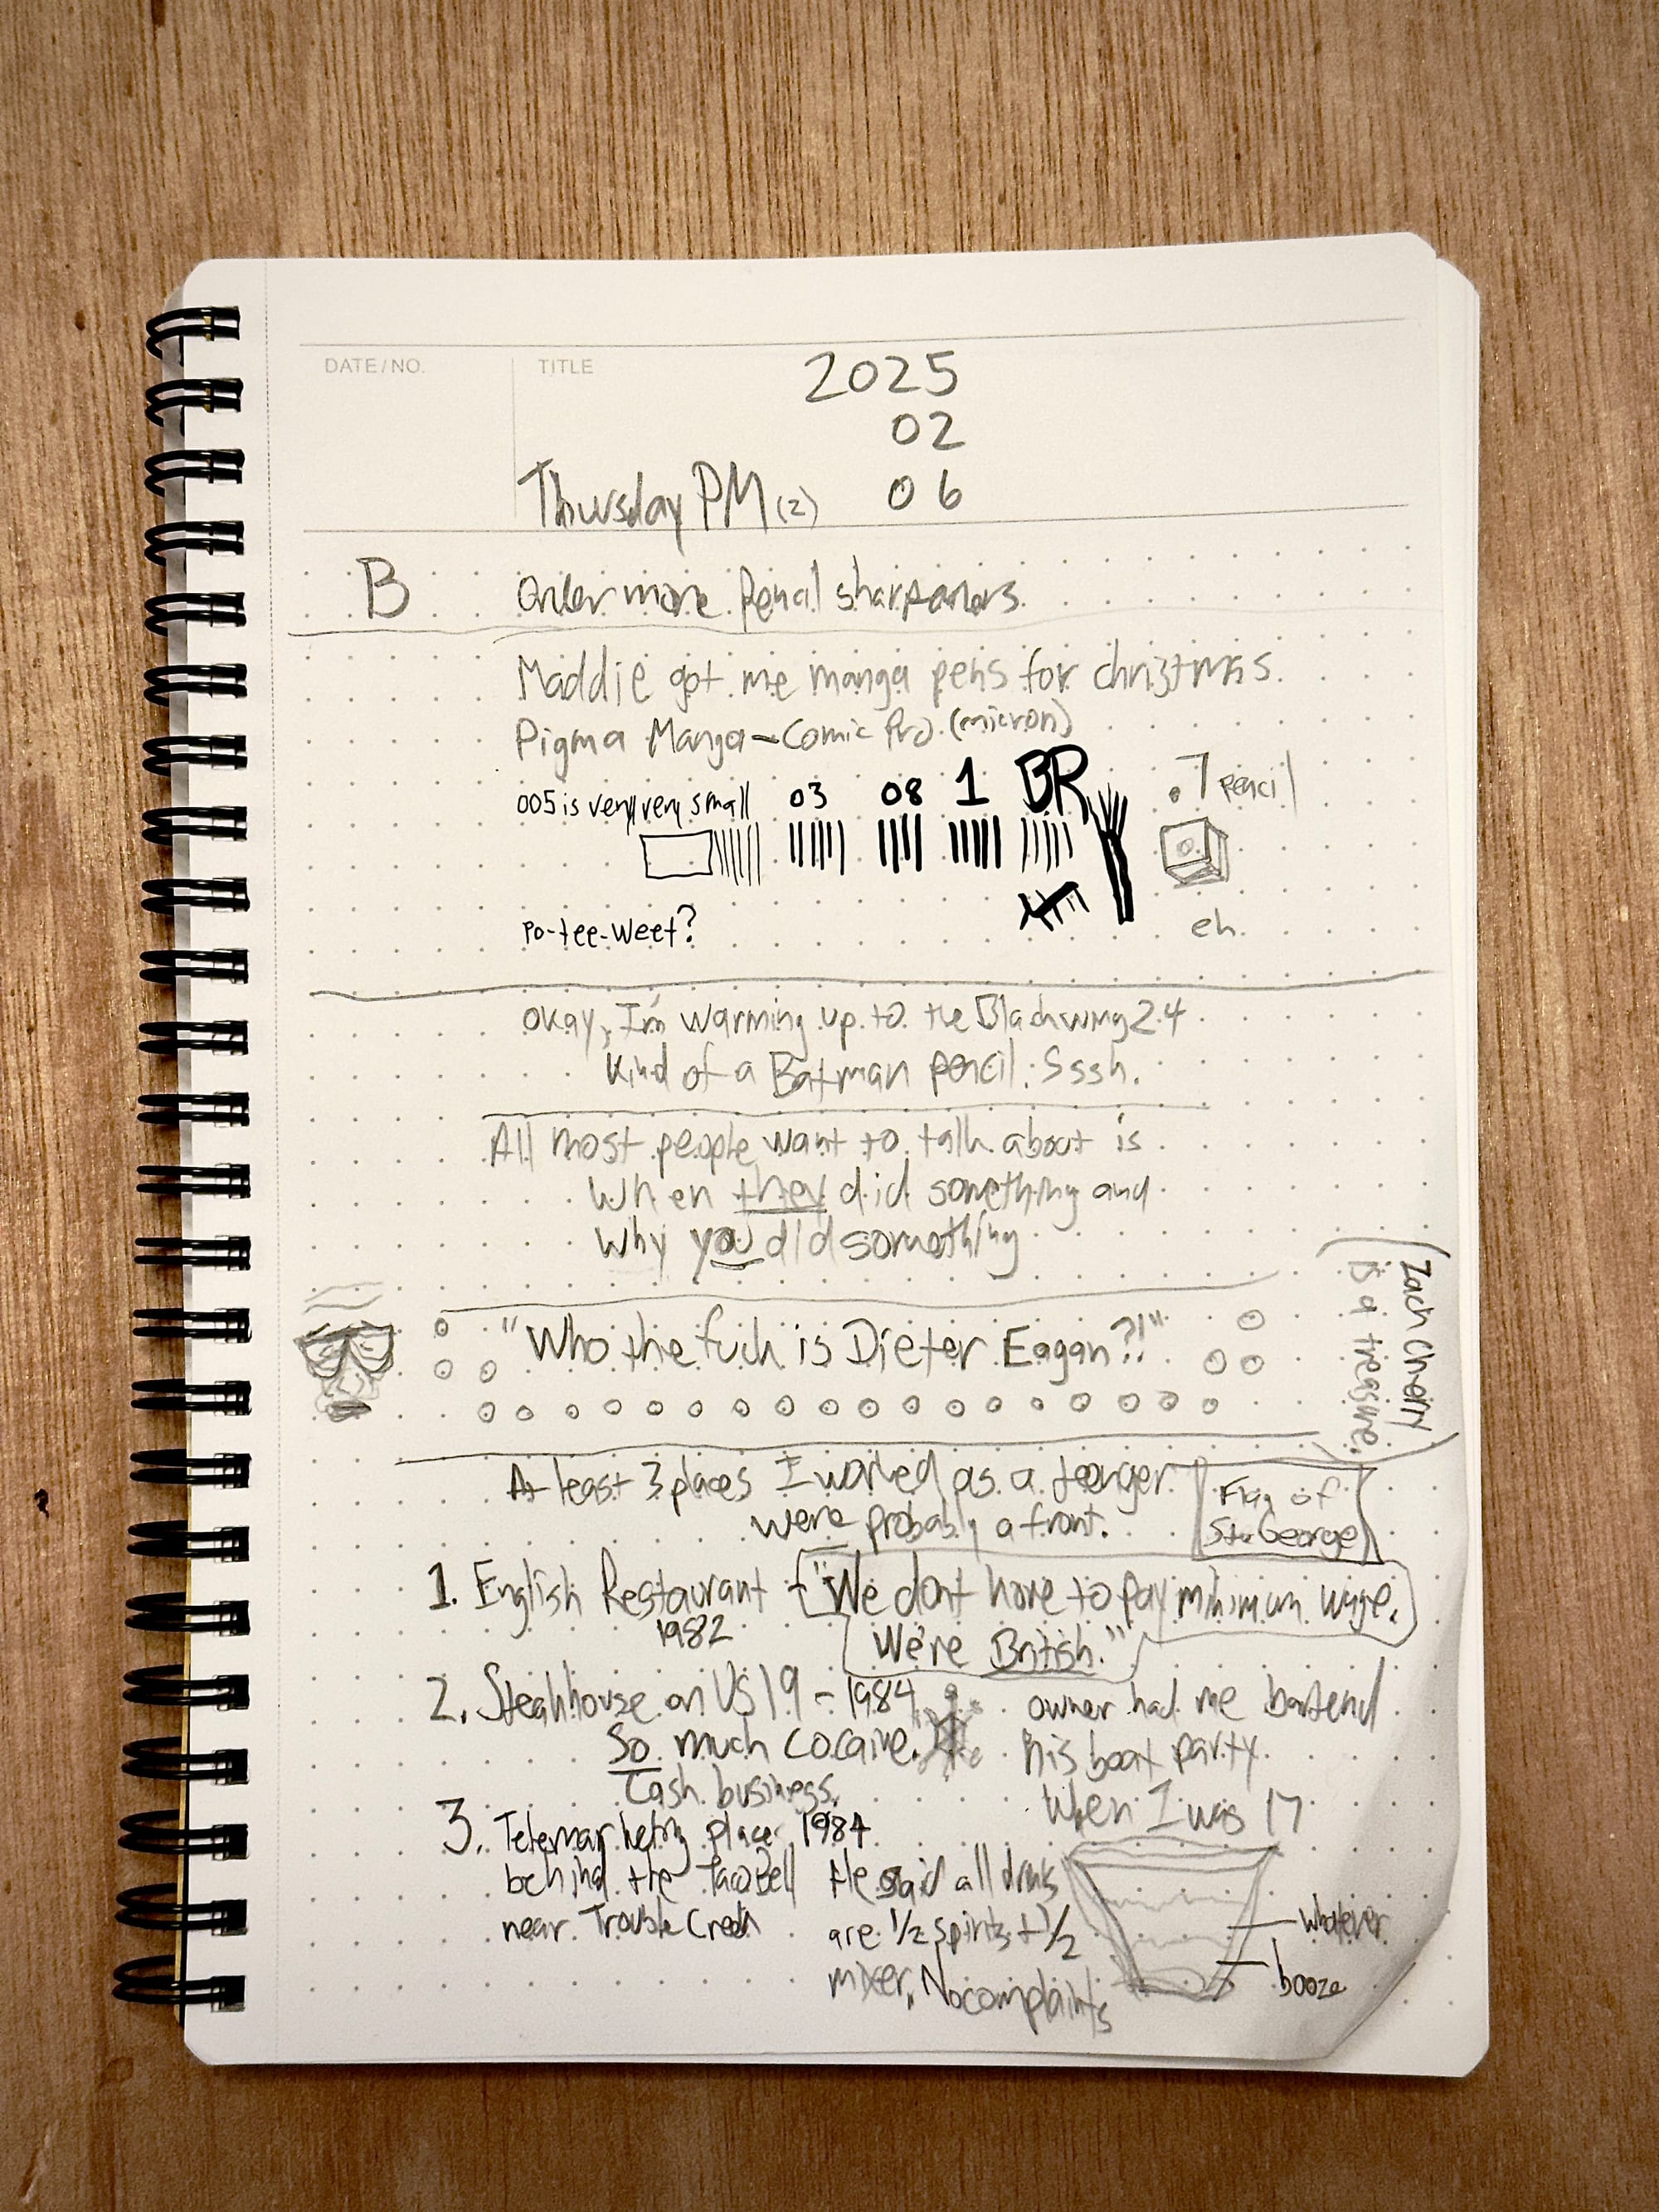 DATE/NO.
TITLE
2025
02
Thursday PM (2) 06
B
Order more Pencil sharpeners.
Maddie got me manga pens for christmas.
Pigma Manga-Comic Pro. (micron)
005 is very very small 03 08 1 BR .7 pencil
po-tee-weet?
eh.
okay, I'm warming up to the Blackwing 24
Kind of a Batman pencil. Sssh.
All most people want to talk about is
when they did something and
why you did something
Zach Cherry
is a treasure.
"Who the fuck is Dieter Eagan?!"
At least 3 places I worked as a teenger
were probably a front.
Flag of
St. George
1. English Restaurant
1982
"We dont have to pay minimum wage.
We're British."
2. Steakhouse on US 19 - 1984
So much cocaine.
Cash business.
owner had me bartend
his boat party
when I was 17
3. Telemarketing place 1984
behind the Taco Bell
near Trouble Creek
He said all drinks
are 1/2 spirits + 1/2
mixer. No complaints
whatever
booze